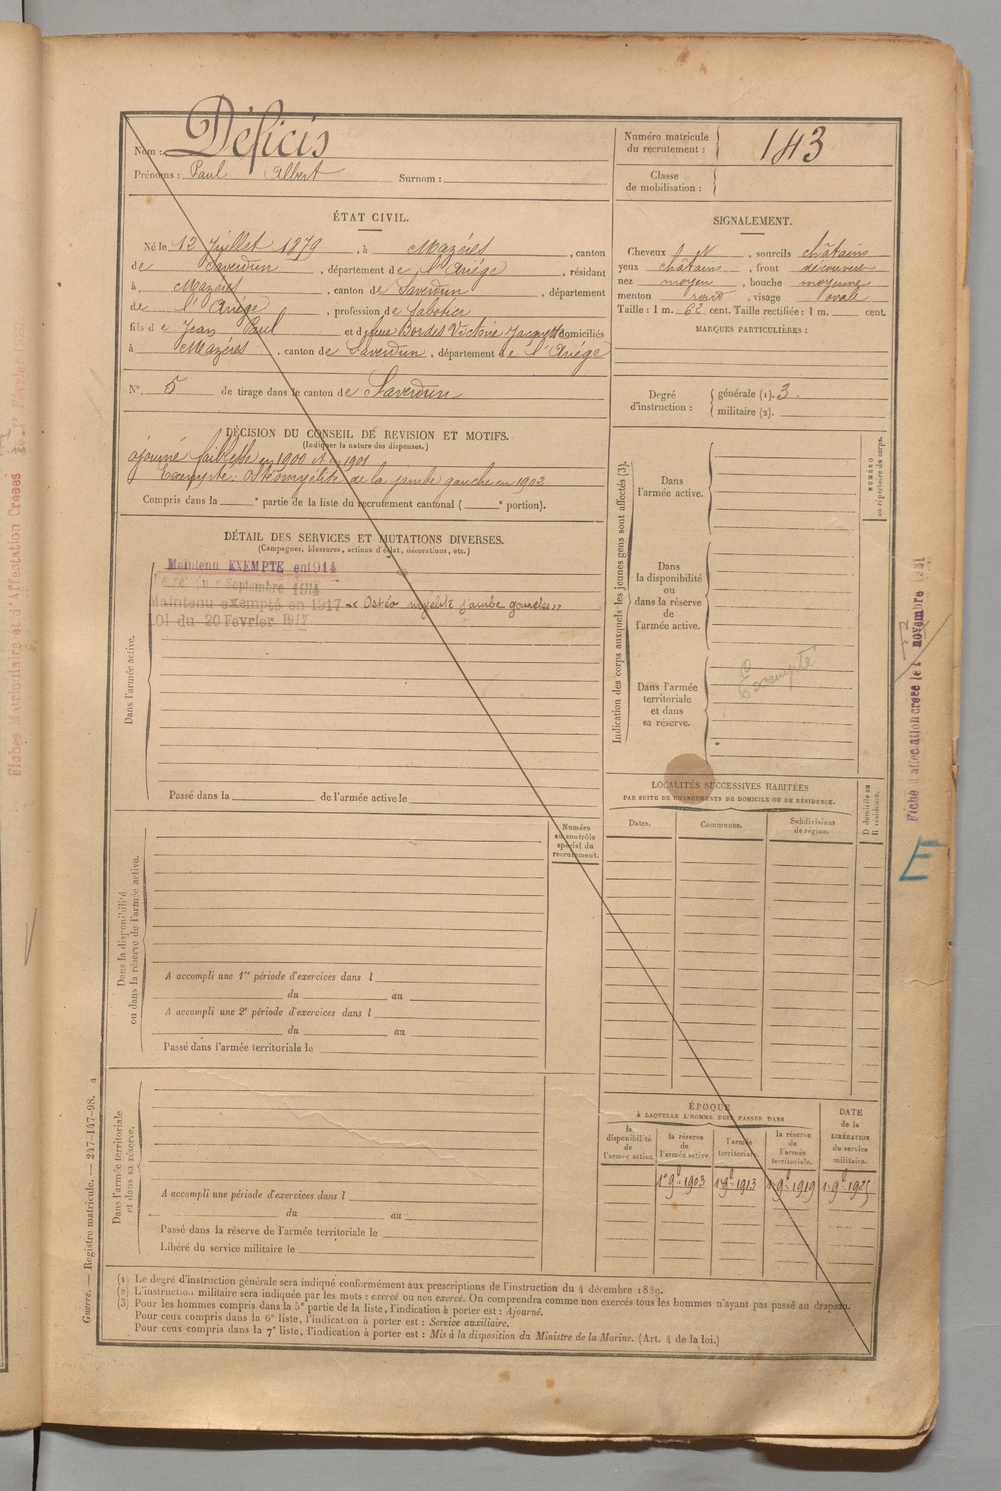 Nom : Déficis
Prénoms : Paul Albert Surnom :
Numéro matricule du recrutement : 143
Classe de mobilisation :
ÉTAT CIVIL.
Né le 12 Juillet 1879, à Mazéres, canton
de Saverdun, département de l'Ariége, résidant
à Mazéres, canton de Saverdun, département
de l'Ariége, profession de Sabotier
fils de Jean Paul et de feue Bordes Victoire domiciliés
à Mazéres, canton de Saverdun, département de l'Ariége
N° 5 de tirage dans le canton de Saverdun
SIGNALEMENT.
Cheveux N, sourcils châtains
yeux châtains, front découvert
nez moyen, bouche moyenne
menton rond, visage ovale
Taille : 1 m. 62 cent. Taille rectifiée : 1 m. cent.
MARQUES PARTICULIÈRES :
Degré d'instruction : générale (1). 3
militaire (2).
DÉCISION DU CONSEIL DE REVISION ET MOTIFS.
(Indiquer la nature des dispenses.)
ajourné faiblesse en 1900 et en 1901
Exempté : Ostéomyélite de la jambe gauche en 1902
Compris dans la e partie de la liste du recrutement cantonal ( e portion).
DÉTAIL DES SERVICES ET MUTATIONS DIVERSES.
(Campagnes, blessures, actions d'éclat, décorations, etc.)
Dans l'armée active.
Maintenu EXEMPTE en 1914
Septembre 1914
Maintenu exempté en 1917 « Ostéo myélite jambe gauche »
Loi du 20 Fevrier 1917
Passé dans la de l'armée active le
Indication des corps auxquels les jeunes gens sont affectés (3).
NUMÉRO au répertoire du corps.
Dans l'armée active.
Dans la disponibilité ou dans la réserve de l'armée active.
Dans l'armée territoriale et dans sa réserve.
Exempté
LOCALITÉS SUCCESSIVES HABITÉES
PAR SUITE DE CHANGEMENTS DE DOMICILE OU DE RÉSIDENCE.
Dates. Communes. Subdivisions de région. D domicile ou R résidence.
Dans la disponibilité ou dans la réserve de l'armée active.
Numéro au contrôle spécial du recrutement.
A accompli une 1re période d'exercices dans l
du au
A accompli une 2e période d'exercices dans l
du au
Passé dans l'armée territoriale le
Dans l'armée territoriale et dans sa réserve.
A accompli une période d'exercices dans l
du au
Passé dans la réserve de l'armée territoriale le
Libéré du service militaire le
ÉPOQUE
À LAQUELLE L'HOMME DOIT PASSER DANS
la disponibilité de l'armée active. la réserve de l'armée active. l'armée territoriale. la réserve de l'armée territoriale. DATE de la LIBÉRATION du service militaire.
1er 9bre 1903 1er 9bre 1913 1er 9bre 1919 1er 9bre 1925
(1) Le degré d'instruction générale sera indiqué conformément aux prescriptions de l'instruction du 4 décembre 1889.
(2) L'instruction militaire sera indiquée par les mots : exercé ou non exercé. On comprendra comme non exercés tous les hommes n'ayant pas passé au drapeau.
(3) Pour les hommes compris dans la 5e partie de la liste, l'indication à porter est : Ajourné.
Pour ceux compris dans la 6e liste, l'indication à porter est : Service auxiliaire.
Pour ceux compris dans la 7e liste, l'indication à porter est : Mis à la disposition du Ministre de la Marine. (Art. 4 de la loi.)
Guerre. — Registre matricule. — 247-147-98.
Fiche d'affectation créée le 1 novembre 1931
E